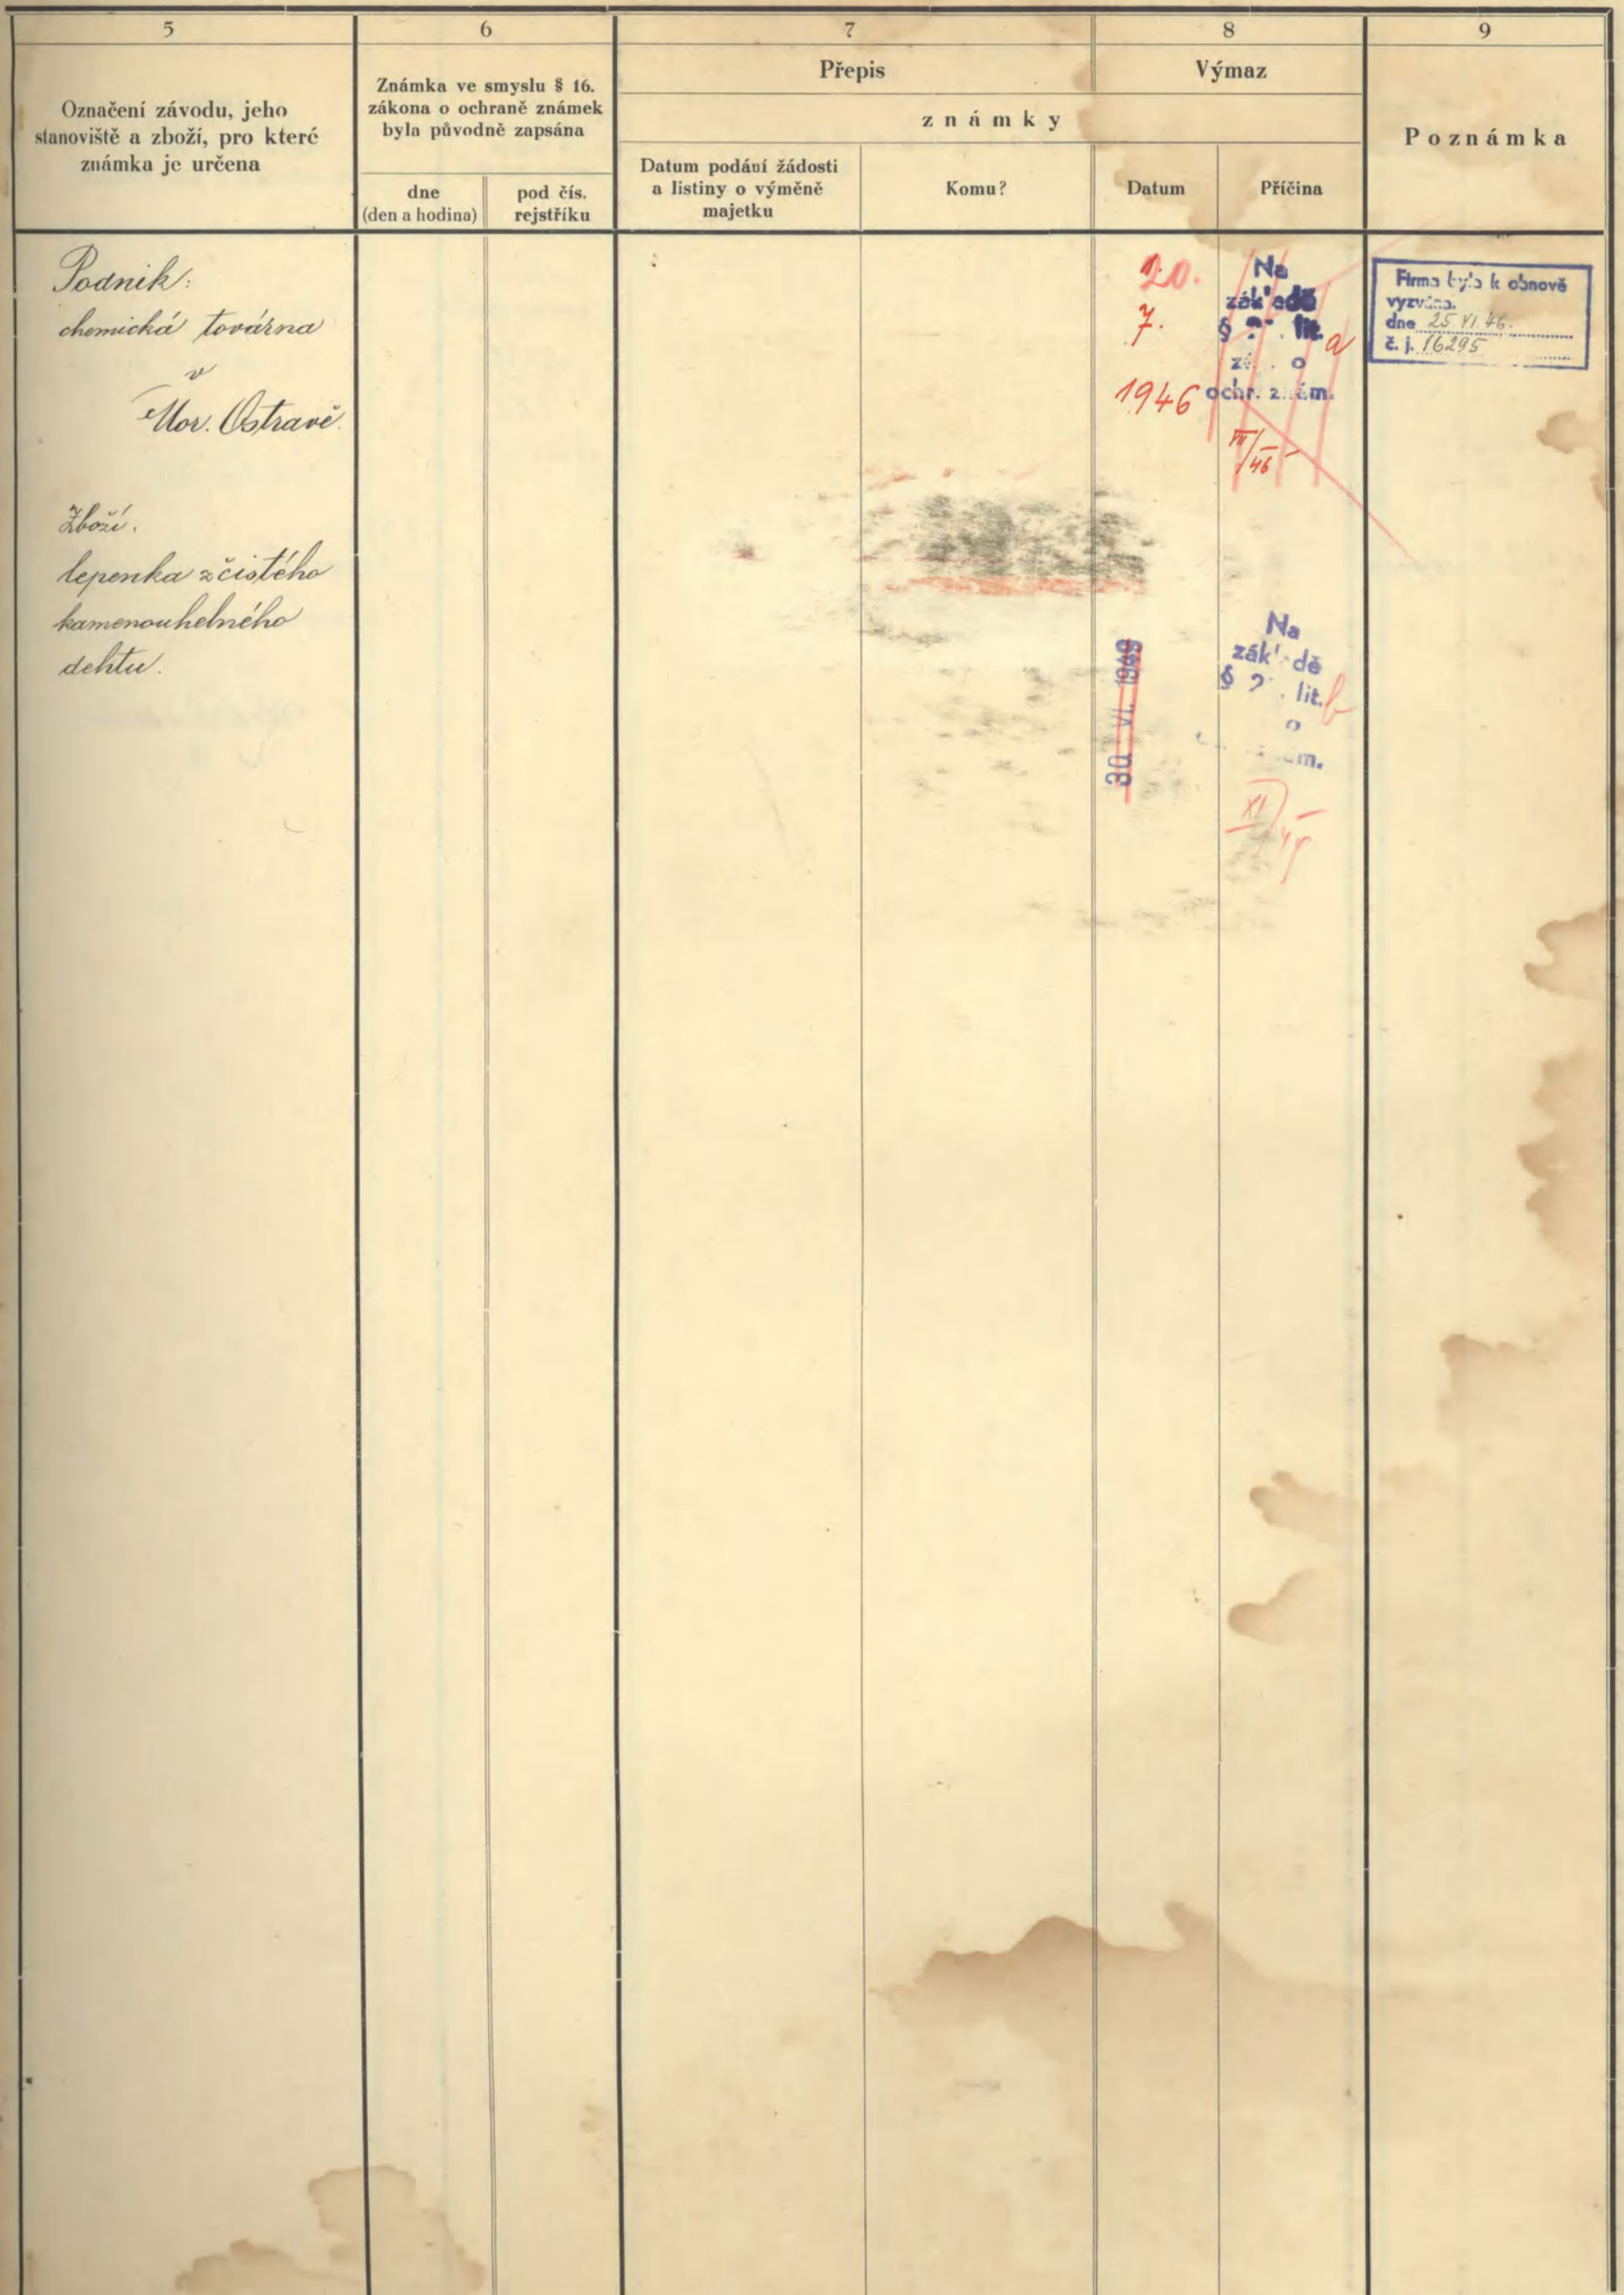 5
6
7
8
9
Označení závodu, jeho
stanoviště a zboží, pro které
známka je určena
Známka ve smyslu § 16.
zákona o ochraně známek
byla původně zapsána
dne
(den a hodina)
pod čís.
rejstříku
Přepis
Výmaz
známky
Datum podání žádosti
a listiny o výměně
majetku
Komu?
Datum
Příčina
Poznámka
Podnik:
chemická továrna
v
Mor. Ostravě.
Zboží:
lepenka z čistého
kamenouhelného
dehtu.
20.
7.
1946
Na
základě
§ lit. a
o
ochr. znám.
VII/46
30. VI. 1949
Na
základě
§ lit. b
o
Firma byla k obnově
vyzvána.
dne 25 VI 46.
č. j. 16295